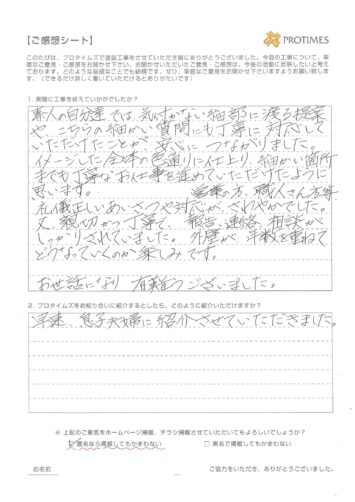 【ご感想シート】
PROTIMES
このたびは、プロタイムズで塗装工事をさせていただき誠にありがとうございました。今回の工事について、率
直なご意見・ご感想をお聞かせ下さい。お聞かせいただいたご意見・ご感想は、今後の活動に反映したいと考え
ております。どのような些細なことでも結構です。ぜひ、率直なご意見をお聞かせ下さいますようお願い致しま
す。（できるだけ詳しく書いていただけるとありがたいです）
1. 実際に工事を終えていかがでしたか？
素人の自分達では、気付かない細部に渡る提案
や、こちらの細かい質問にも丁寧に対応して
いただけたことが安心につながりました。
イメージした全体の色通りに仕上り、細かい箇所
までも丁寧なお仕事を進めていただけたように
思います。 営業の方、職人さん方等
礼儀正しいあいさつや対応が、さわやかでした。
又、親切かつ丁寧で、報告、連絡、相談が
しっかりされていました。外壁が年数を重ねて
どうなっていくのか楽しみです。
お世話になり 有難うございました。
2. プロタイムズをお知り合いに紹介するとしたら、どのように紹介いただけますか？
早速、息子夫婦に紹介させていただきました。
※ 上記のご意見をホームページ掲載、チラシ掲載させていただいてもよろしいでしょうか？
匿名なら掲載してもかまわない □ 実名で掲載してもかまわない
お名前
ご協力をいただき、ありがとうございました。